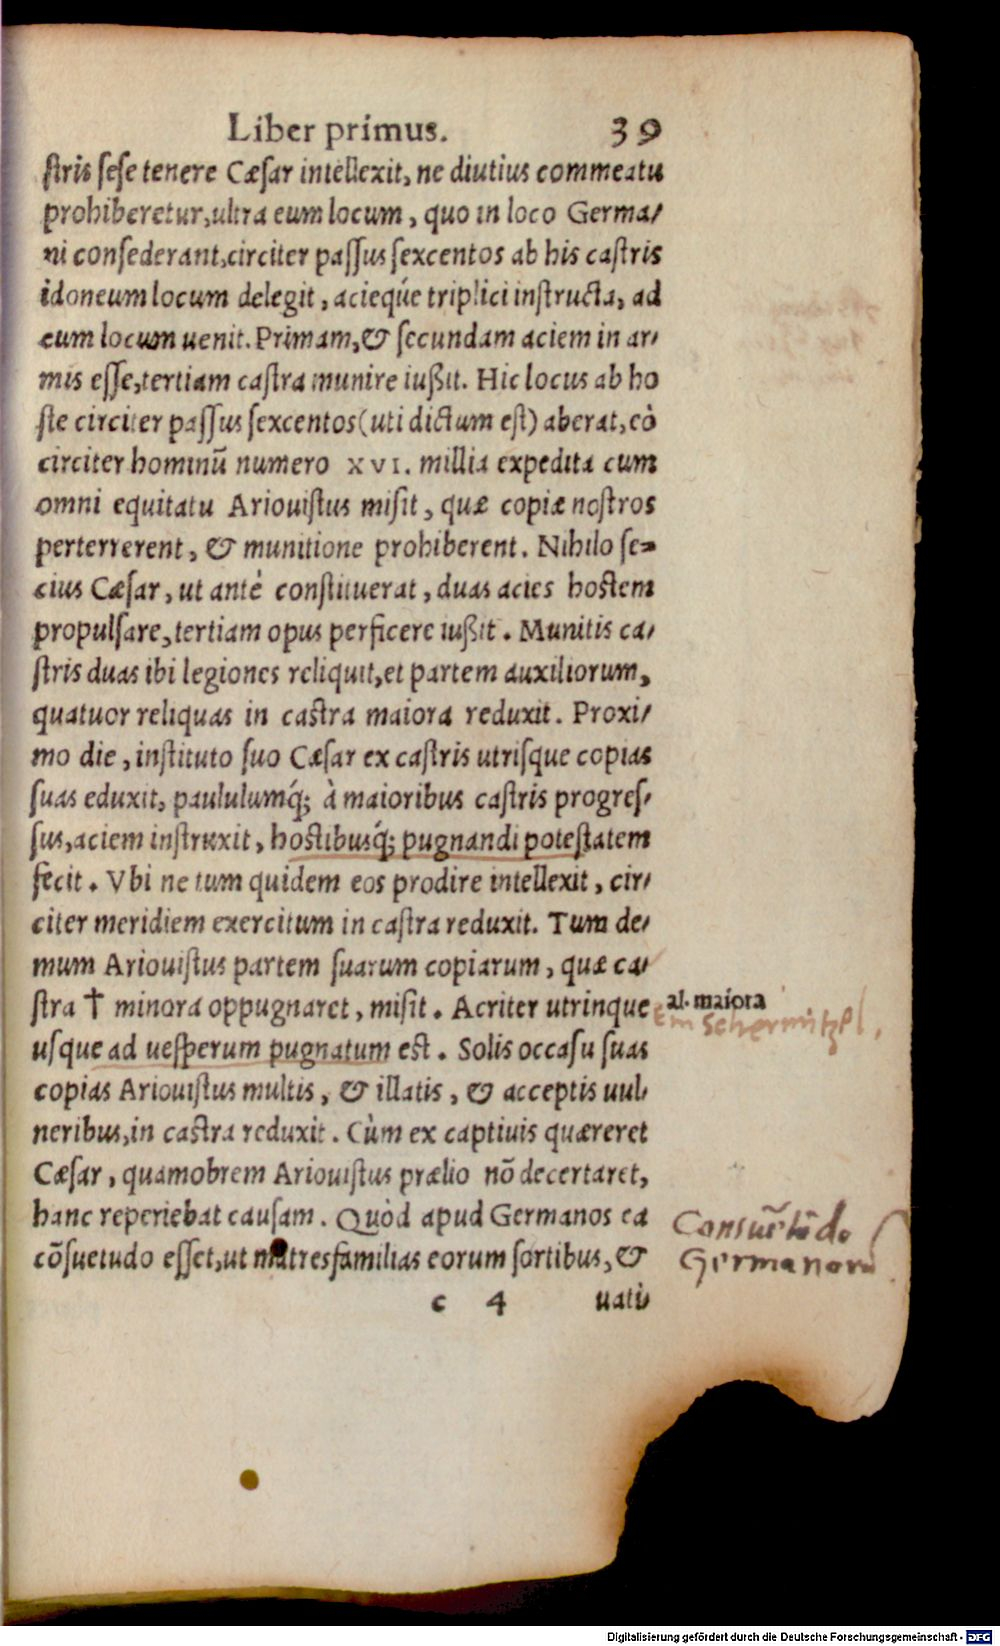 Liber primus. 39
stris sese tenere Cæsar intellexit, ne diutius commeatu
prohiberetur, ultra eum locum, quo in loco Germa/
ni consederant, circiter passus sexcentos ab his castris
idoneum locum delegit, acieque triplici instructa, ad
eum locum uenit. Primam, & secundam aciem in ar/
mis esse, tertiam castra munire iußit. Hic locus ab ho
ste circiter passus sexcentos (uti dictum est) aberat, eò
circiter hominũ numero XVI. millia expedita cum
omni equitatu Ariouistus misit, quæ copiæ nostros
perterrerent, & munitione prohiberent. Nihilo se=
cius Cæsar, ut antè constituerat, duas acies hostem
propulsare, tertiam opus perficere iußit. Munitis ca/
stris duas ibi legiones reliquit, et partem auxiliorum,
quatuor reliquas in castra maiora reduxit. Proxi/
mo die, instituto suo Cæsar ex castris utrisque copias
suas eduxit, paululumq́; à maioribus castris progres/
sus, aciem instruxit, hostibusq́; pugnandi potestatem
fecit. Vbi ne tum quidem eos prodire intellexit, cir/
citer meridiem exercitum in castra reduxit. Tum de/
mum Ariouistus partem suarum copiarum, quæ ca/
stra † minora oppugnaret, misit. Acriter utrinque
al. maiora
Ein Schermützel.
usque ad uesperum pugnatum est. Solis occasu suas
copias Ariouistus multis, & illatis, & acceptis uul/
neribus, in castra reduxit. Cùm ex captiuis quæreret
Cæsar, quamobrem Ariouistus prælio nõ decertaret,
hanc reperiebat causam. Quòd apud Germanos ea
cõsuetudo esset, ut matresfamilias eorum sortibus, &
Consuetudo
Germanorũ
c 4 uati/
Digitalisierung gefördert durch die Deutsche Forschungsgemeinschaft - DFG